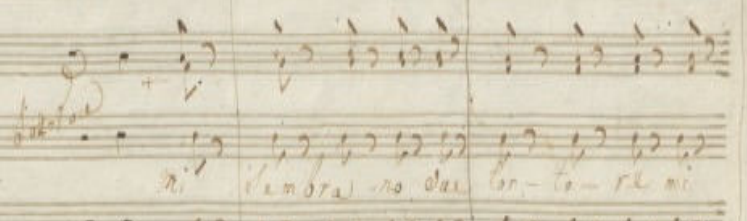 mi sembrano due tor-to-re mi